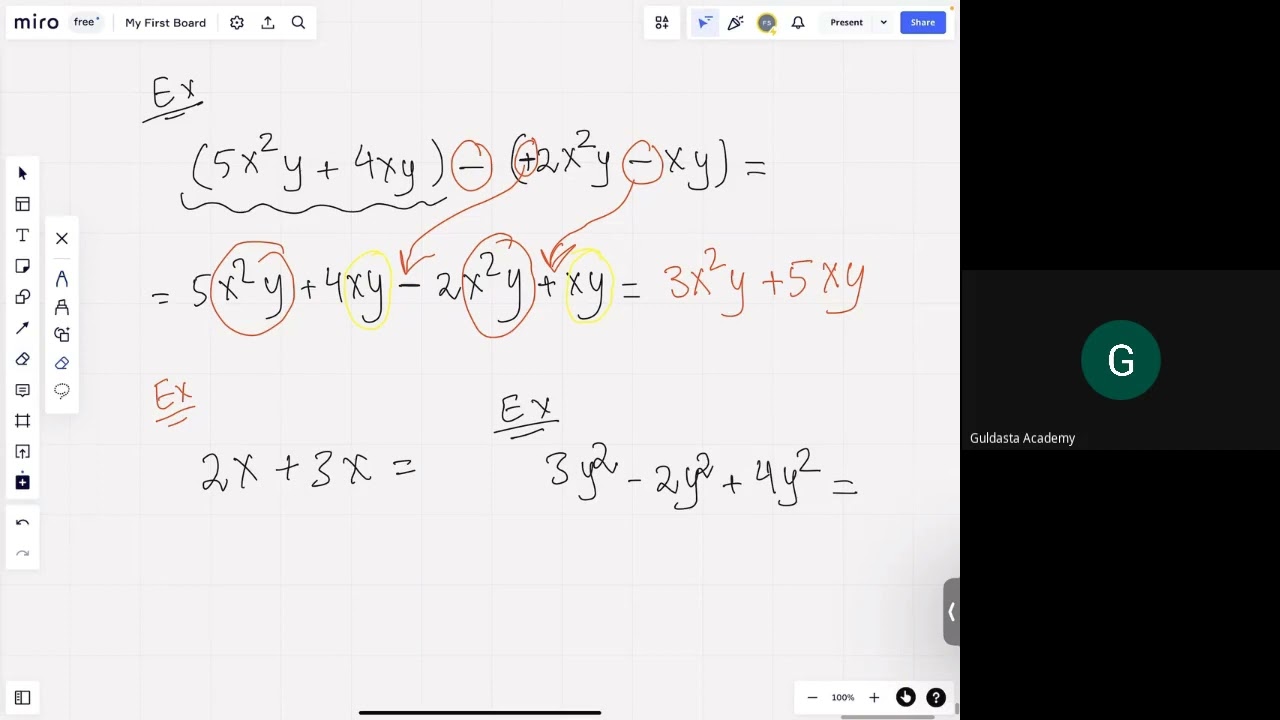 miro free My First Board Present Share
Ex
(5x²y + 4xy) − (+2x²y − xy) =
= 5x²y + 4xy − 2x²y + xy = 3x²y + 5xy
Ex
2x + 3x =
Ex
3y² − 2y² + 4y² =
G
Guldasta Academy
100%